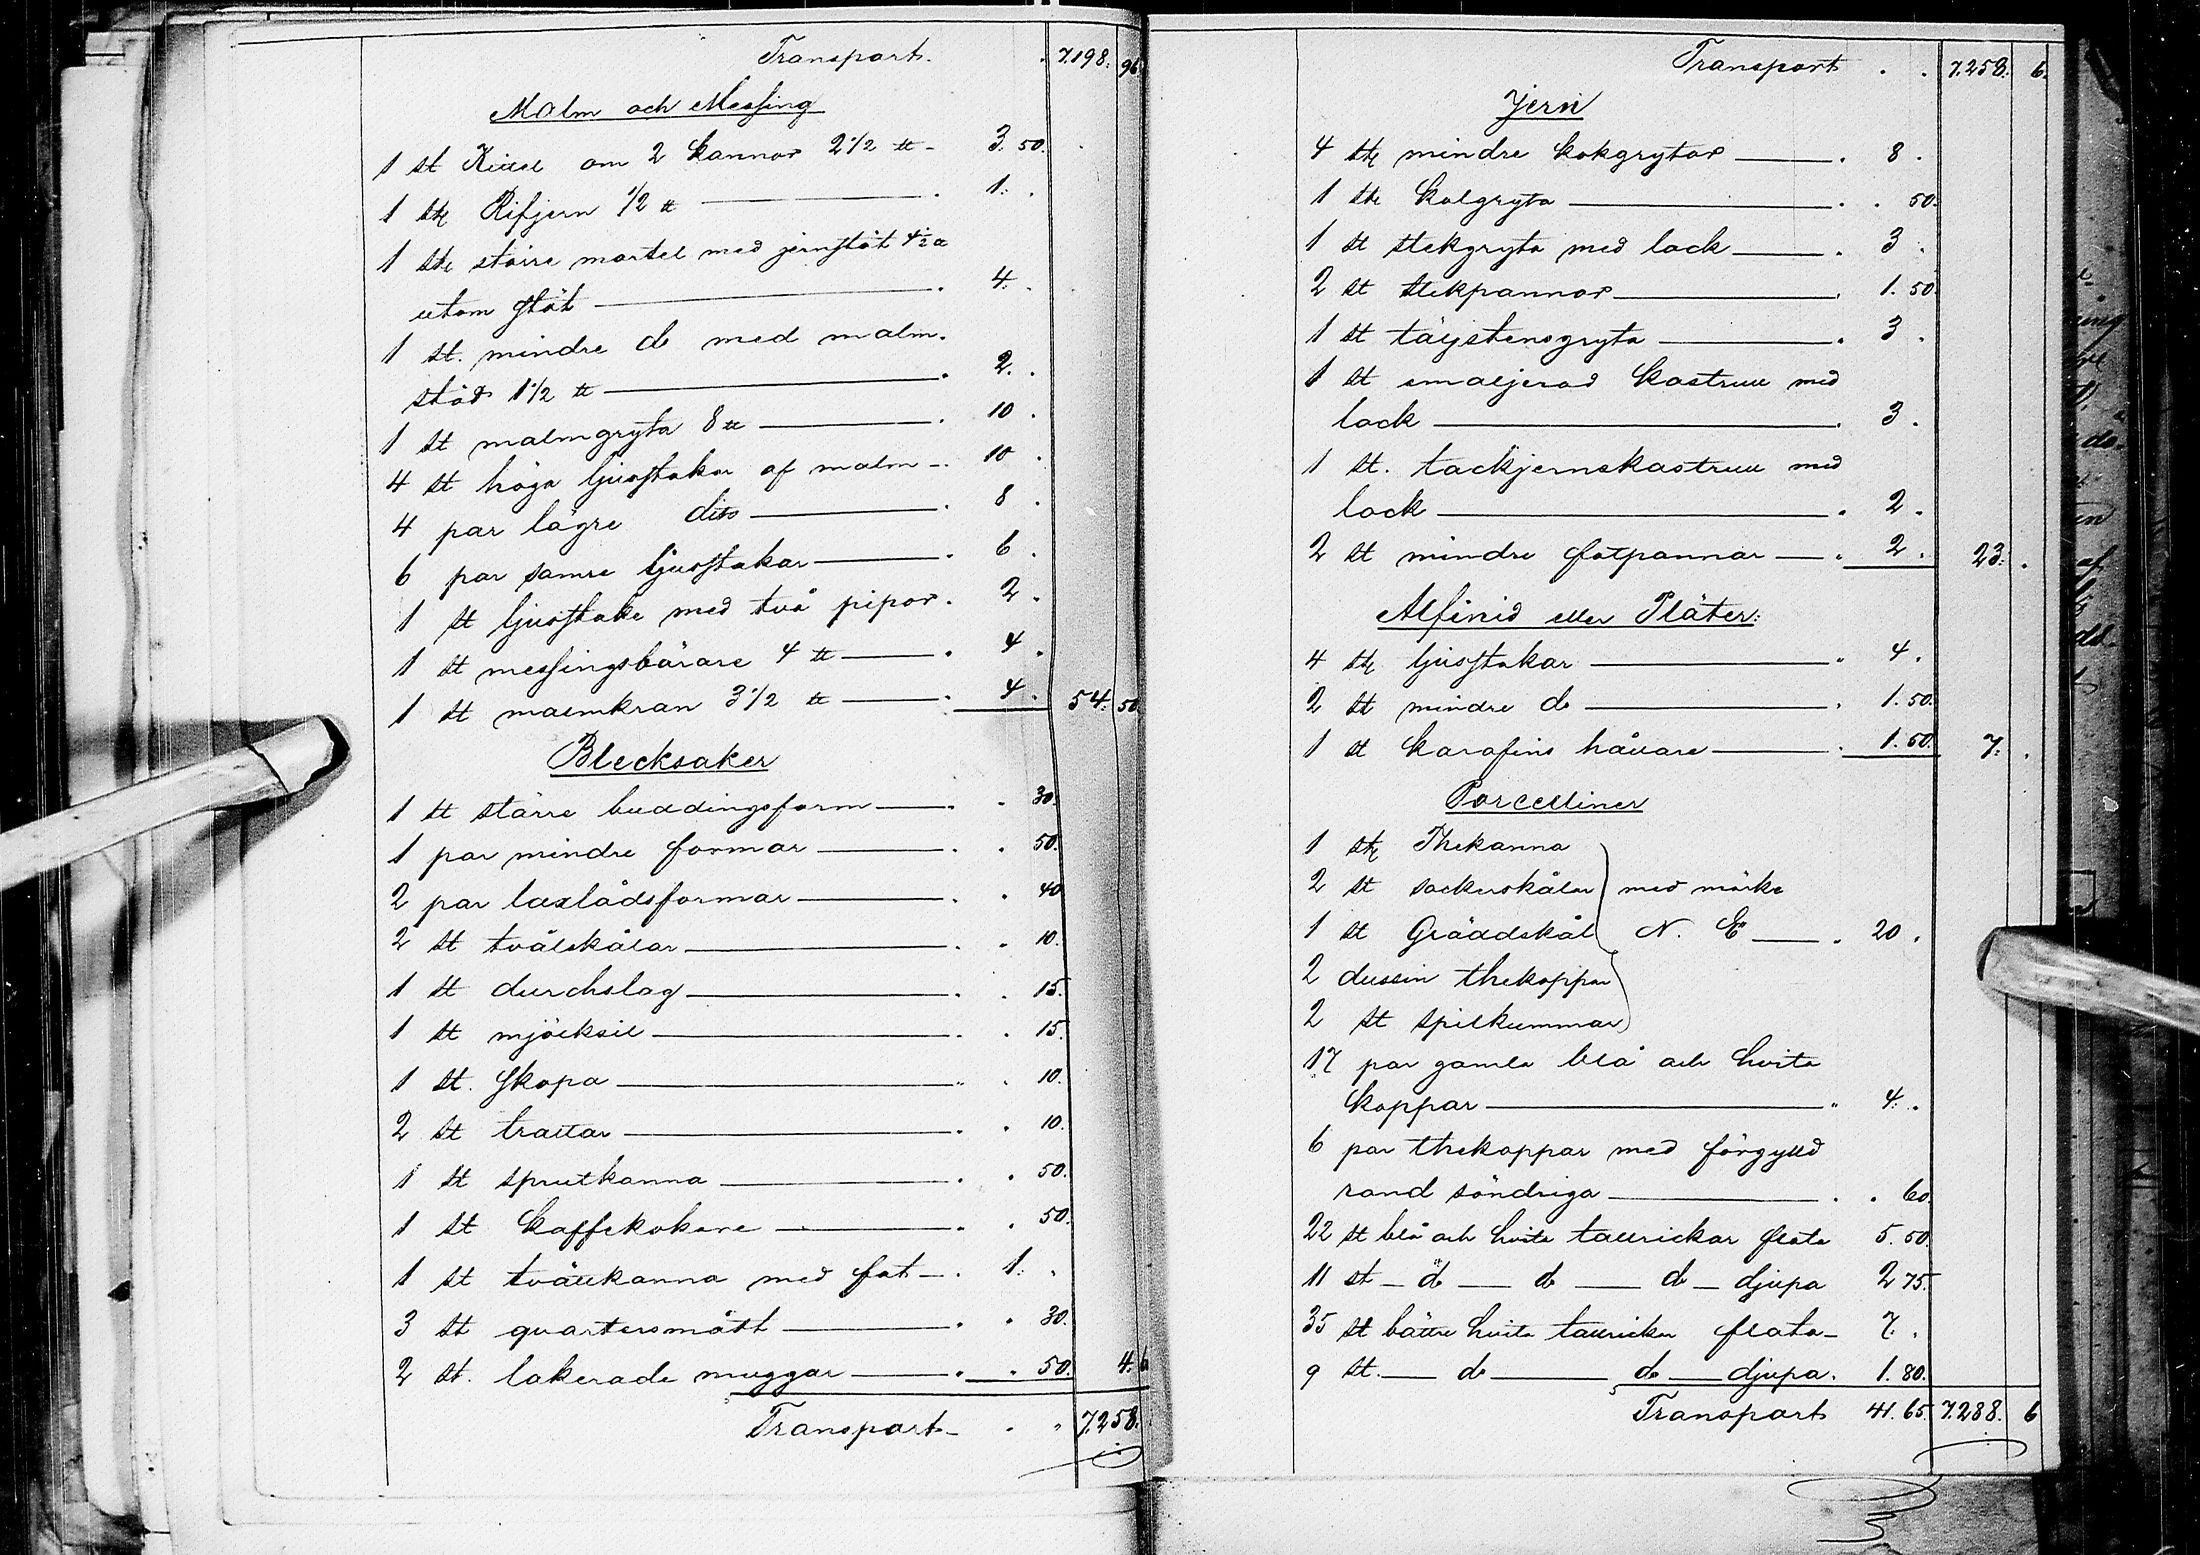 Transport. 7198. 96
Malm och Messing
1 st Kittel om 2 kannor 2 1/2 ℔ 3. 50.
1 st Rifjern 1/2 ℔ 1.
1 st större mortel med jernstöt 4 1/2 ℔
utom stöt 4.
1 st. mindre do med malm.
stöd 1 1/2 ℔ 2.
1 st malmgryta 8 ℔ 10.
4 st höga ljusstakar af malm 10.
4 par lägre dito 8.
6 par samre ljusstakar 6.
1 st ljusstake med två pipor. 2.
1 st messingsbärare 4 ℔ 4.
1 st malmkran 3 1/2 ℔ 4. 54. 50
Blecksaker
1 st större buddingsform 30.
1 par mindre formar 50.
2 par laxlådsformar 40
2 st tvålskålar 10.
1 st durchslag 15.
1 st mjölksil 15.
1 st. skopa 10.
2 st trattar 10.
1 st sprutkanna 50.
1 st kaffekokare 50.
1 st tvättkanna med fat 1.
3 st qvartersmått 30.
2 st. lakerade muggar 50. 4. 6
Transport 7258.
Transport 7.258. 6.
Jern
4 st mindre kokgrytor 8.
1 st kolgryta 50.
1 st stekgryta med lock 3.
2 st stekpannor 1. 50.
1 st täljstensgryta 3.
1 st emaljerad kastrull med
lock 3.
1 st. tackjernskastrull med
lock 2.
2 st mindre flatpannar 2. 23.
Alfenid eller Pläter:
4 st ljusstakar 4.
2 st mindre do 1. 50.
1 st karafins hållare 1. 50. 7.
Porcelliner
1 st Thekanna
2 st sockerskålar med märke
1 st Gräddskål N. E. 20.
2 dussin thekoppar
2 st spilkummar
17 par gamla blå och hvita
koppar 4.
6 par thekoppar med förgylld
rand söndriga 60.
22 st blå och hvita tallrickar flata 5. 50.
11 st do do do djupa 2 75.
35 st bättre hvita tallrickar flata 7.
9 st. do do djupa. 1. 80.
Transport 41. 65. 7.288. 6